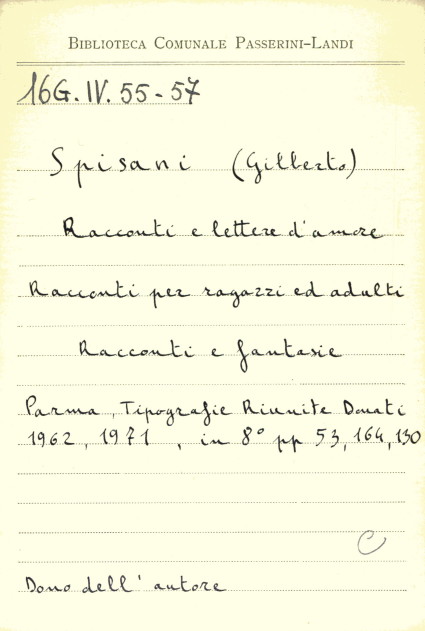 BIBLIOTECA COMUNALE PASSERINI-LANDI
16G. IV. 55-57
Spisani (Gilberto)
Racconti e lettere d'amore
Racconti per ragazzi ed adulti
Racconti e fantasie
Parma, Tipografie Riunite Donati
1962, 1971, in 8° pp 53, 164, 130
C
Dono dell'autore